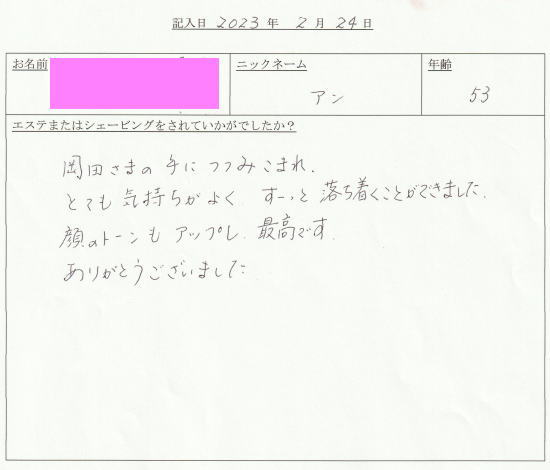 記入日 2023 年 2 月 24 日
お名前 ニックネーム 年齢
アン 53
エステまたはシェービングをされていかがでしたか？
岡田さまの手につつみこまれ、
とても気持ちがよく すーっと落ち着くことができました。
顔のトーンもアップし 最高です。
ありがとうございました